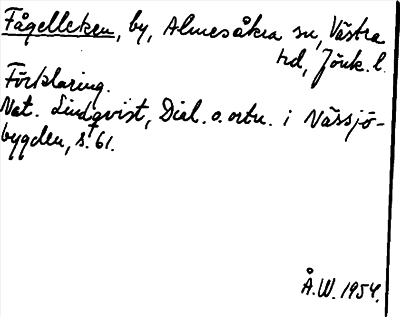 Fågelleken, by, Almesåkra sn, Västra
hd, Jönk. l.
Förklaring.
Nat. Lindqvist, Dial. o. ortn. i Nässjö-
bygden, s. 61.
Å.W. 1954.